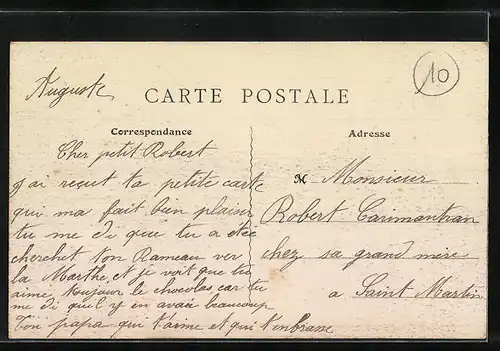 Auguste
10
CARTE POSTALE
Correspondance
Adresse
Cher petit Robert
j'ai reçut ta petite carte
qui ma fait bien plaisir
tu me di que tu a étée
cherchet ton Rameau ver
la Marthe, et je voit que tu
aime toujour le chocolas car tu
me di quel y en avair beaucoup
Ton papa qui t'aime et qui t'enbrasse
M Monsieur
Robert Carimantran
chez sa grand mère
a Saint Martin